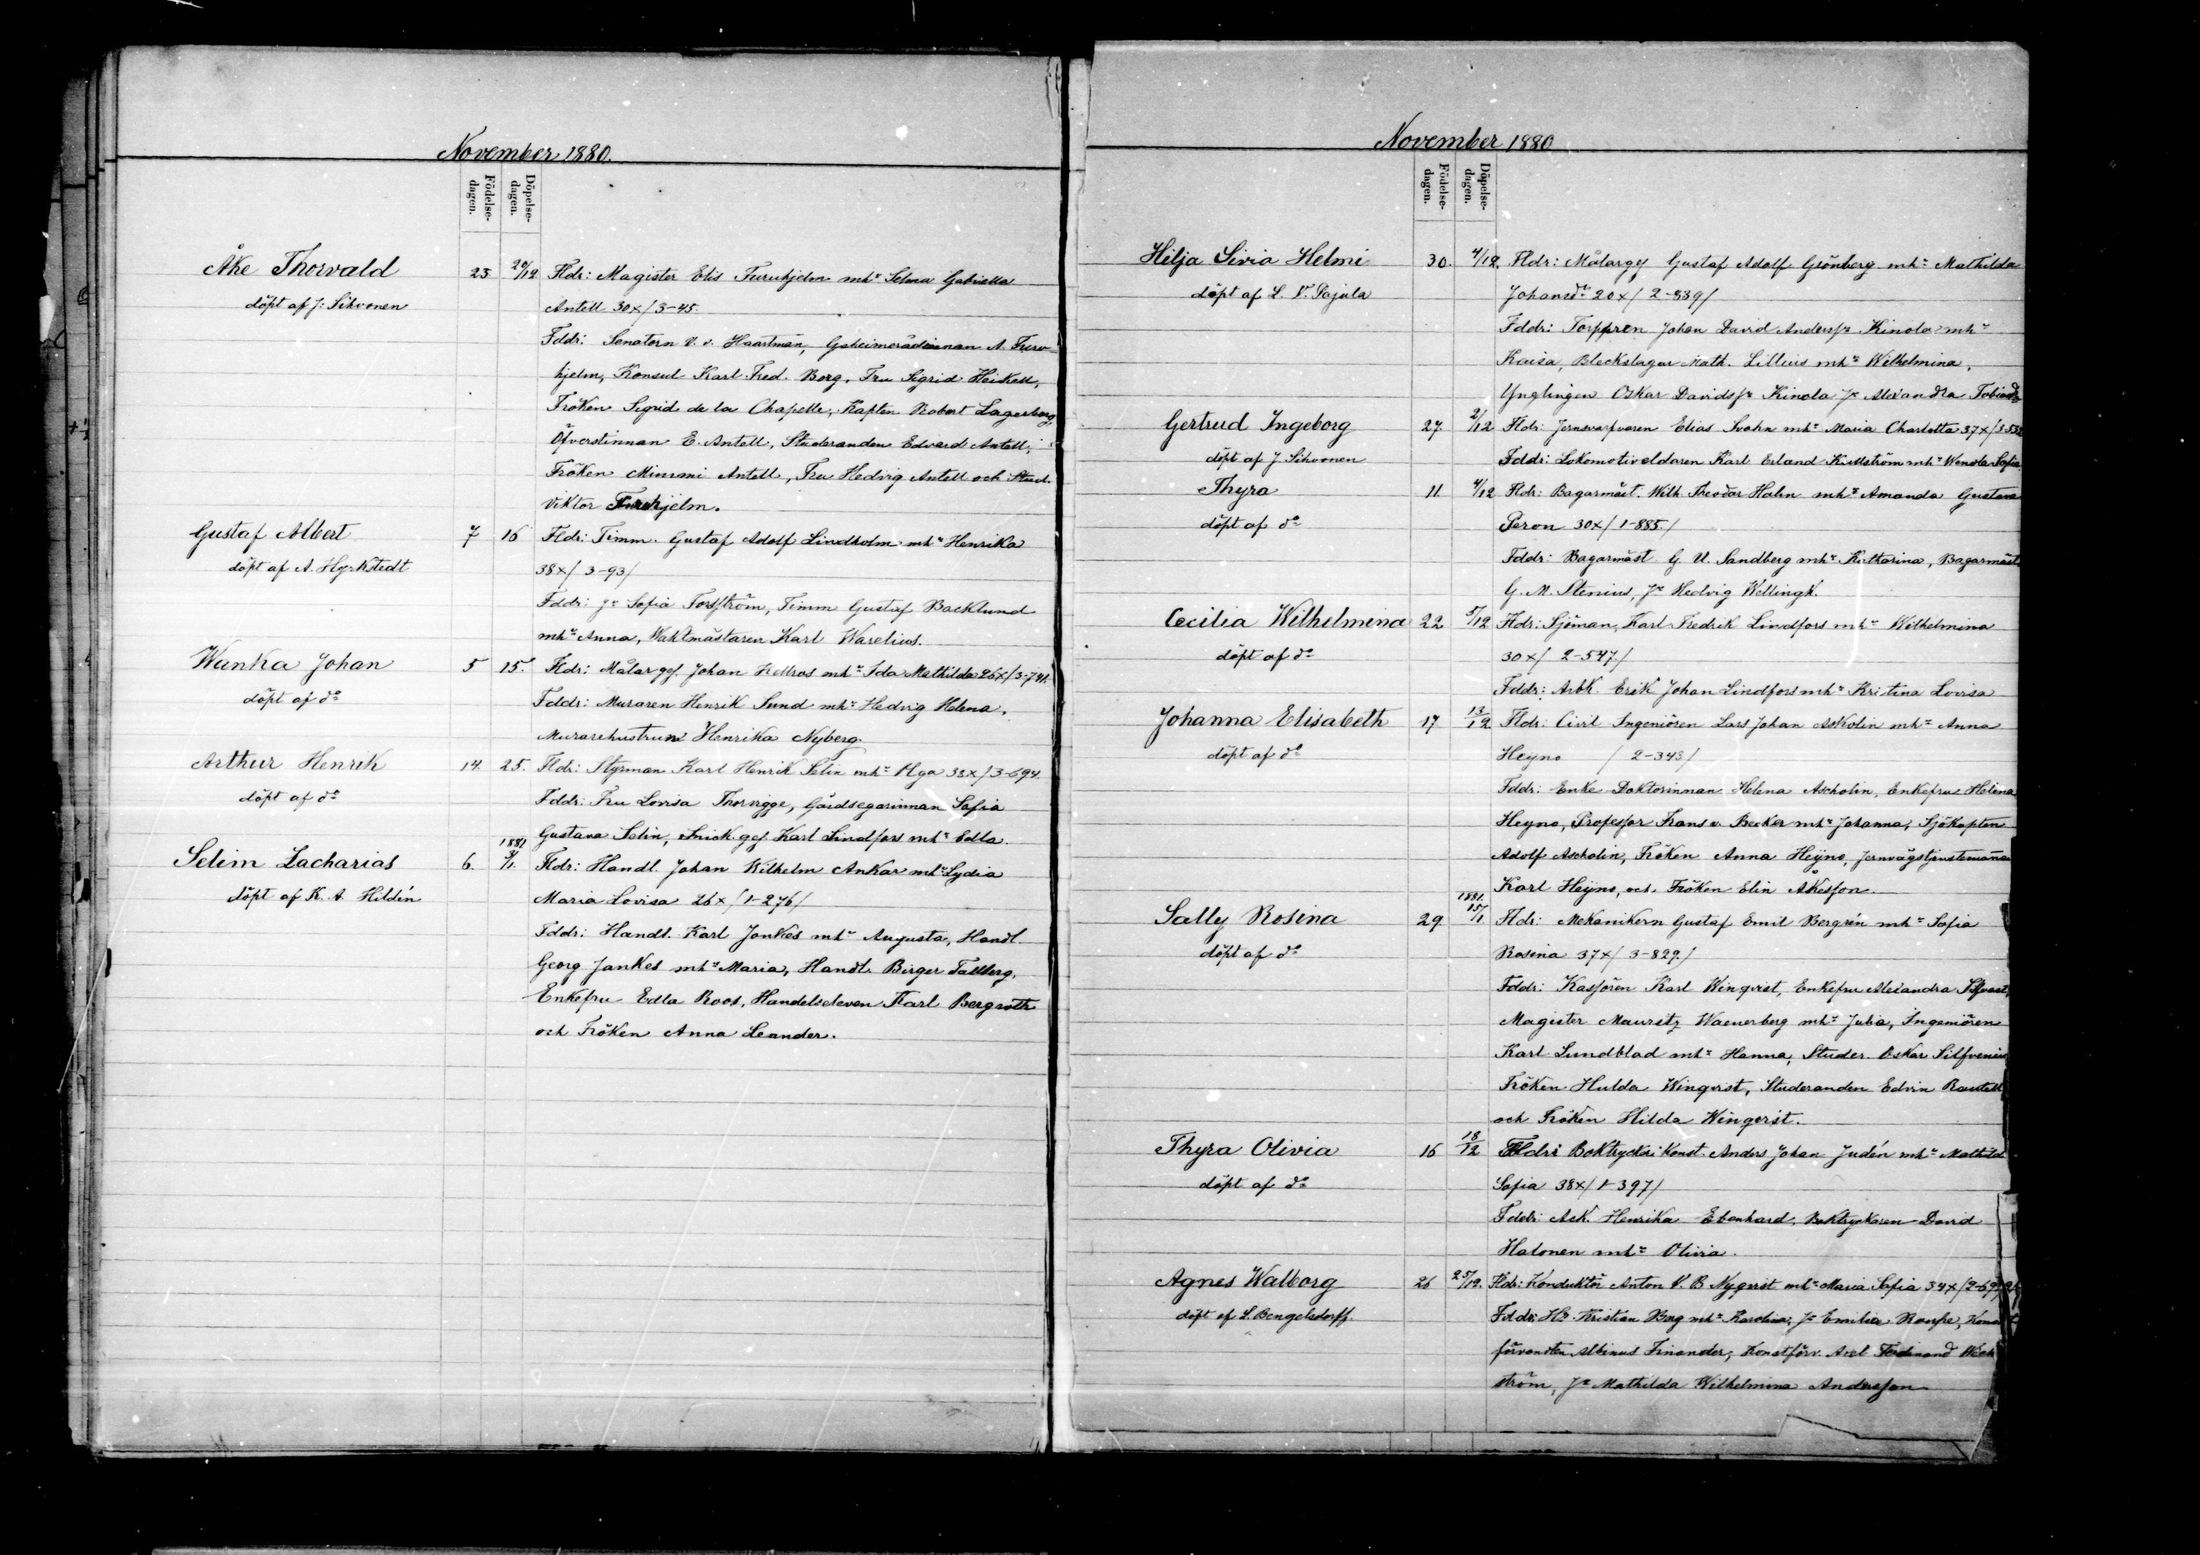 November 1880.
Födelse-
dagen.
Döpelse-
dagen.
Åke Thorvald 23 20/12 Fldr: Magister Elis Furuhjelm mhu Selma Gabriella
döpt af J: Sihvonen Antell 30x/3-45.
Fddr: Senatorn V. v. Haartman, Geheimerådinnan A. Furu-
hjelm, Konsul Karl Fred. Borg, Fru Sigrid Heikell,
Fröken Sigrid de la Chapelle, Kapten Robert Lagerborg,
Öfverstinnan E. Antell, Studeranden Edvard Antell,
Fröken Mimmi Antell, Fru Hedvig Antell och Stud.
Viktor Furuhjelm.
Gustaf Albert 7 16 Fldr: Timm. Gustaf Adolf Lindholm mhu Henrika
döpt af A. Hyrkstedt 38x/3-93/
Fddr: Ja Sofia Forsström, Timm Gustaf Backlund
mhu Anna, Vaktmästaren Karl Warelius.
Johan 5 15. Fldr: Målar gef. Johan Hellros mhu Ida Mathilda 26x/3-741.
döpt af do Fddr: Muraren Henrik Sund mhu Hedvig Helena,
Murarehustrun Henrika Nyberg.
Arthur Henrik 14. 25. Fldr: Styrman Karl Henrik Selin mhu Olga 33x/3-694.
döpt af do Fddr: Fru Lovisa Thorvigge, Gårdsegarinnan Sofia
Gustava Selin, Snick. gef. Karl Lindfors mhu Edla.
Selim Zacharias 6. 1881 3/1. Fldr: Handl. Johan Wilhelm Ankar mhu Lydia
döpt af K. A. Hildén Maria Lovisa 26x/1-276/
Fddr: Handl. Karl Jankes mhu Augusta, Handl.
Georg Jankes mhu Maria, Handl. Birger Tallberg,
Enkefru Edla Roos, Handelseleven Karl Bergroth
och Fröken Anna Leander.
November 1880
Födelse-
dagen.
Döpelse-
dagen.
Hilja Sivia Helmi 30. 4/12. Fldr: Målargef Gustaf Adolf Grönberg mhu Mathilda
döpt af L. V. Pajula Johansdr 20x/2-839/
Fddr: Torpparen Johan David Anderssn Kinola mhu
Kaisa, Bleckslagar Math. Lillius mhu Wilhelmina,
Ynglingen Oskar Davidssn Kinola Ja Alexandra
Gertrud Ingeborg 27 2/12 Fldr: Jernsvarfvaren Elias Svahn mhu Maria Charlotta 37x/
döpt af J Sihvonen Fddr: Lokomotiveldaren Karl Erland Kullström mhu Wendla Sofia
Thyra 11. 4/12 Fldr: Bagarmäst. Wilh. Theodor Hahn mhu Amanda Gustava
döpt af do Peron 30x/1-885./
Fddr: Bagarmäst G. U. Sandberg mhu Katharina, Bagarmäst
G. M. Stenius, Ja Hedvig Wellingk.
Cecilia Wilhelmina 22 5/12 Fldr: Sjöman, Karl Fredrik Lindfors mhu Wilhelmina
döpt af do 30x/ 2-547./
Fddr: Arbk. Erik Johan Lindfors mhu Kristina Lovisa
Johanna Elisabeth 17 13/12 Fldr: Civil Ingeniören Lars Johan Askolin mhu Anna
döpt af do Heyno /2-343/
Fddr: Enke Doktorinnan Helena Ascholin, Enkefru Helena
Heyno, Professor Frans v. Becker mhu Johanna, Sjökapten
Adolf Ascholin, Fröken Anna Heyno, Jernvägstjenstemannen
Karl Heyno, och Fröken Elin Åkesson.
Sally Rosina 29 1881. 15/1 Fldr: Mekanikern Gustaf Emil Bergrén mhu Sofia
döpt af do Rosina 37x/3-829/
Fddr: Kassören Karl Winqvist, Enkefru Alexandra
Magister Mauritz Waenerberg mhu Julia, Ingeniören
Karl Sundblad mhu Hanna, Studer. Oskar Silfvenius
Fröken Hulda Winqvist, Studeranden Edvin Rautell
och Fröken Hilda Winqvist.
Thyra Olivia 16 18/12 Fldr: Boktryckeri Konst. Anders Johan Judén mhu Mathilda
döpt af do Sofia 38x/1-397/
Fddr: Ack. Henrika Ebenhard, Boktryckaren David
Halonen mhu Olivia.
Agnes Walborg 26 25/12. Fldr: Konduktör Anton V. B Nyqvist mhu Maria Sofia 34x/2-69
döpt af L. Bengelsdorff. Fddr: Kristian Borg mhu Karolina, Ja Emilia
förvandten Albinus Finander, Konstförv. Axel Ferdinand Weck-
ström, Ja Mathilda Wilhelmina Andersson.